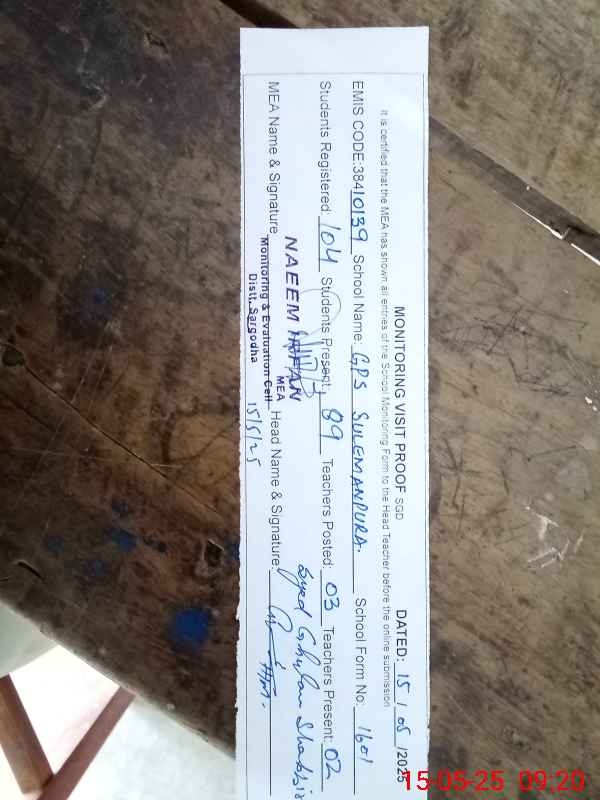 MONITORING VISIT PROOF SGD DATED: 15/05/2025
It is certified that the MEA has shown all entries of the School Monitoring Form to the Head Teacher before the online submission
EMIS CODE:38410139 School Name: GPS SULEMANPURA. School Form No: 1601
Students Registered: 104 Students Present: 89 Teachers Posted: 03 Teachers Present: 02
MEA Name & Signature Head Name & Signature: Syed Ghulam Shabbir
NAEEM IRFAN
MEA
Monitoring & Evaluation Cell
Distt. Sargodha
15/5/25
15-05-25 09:20